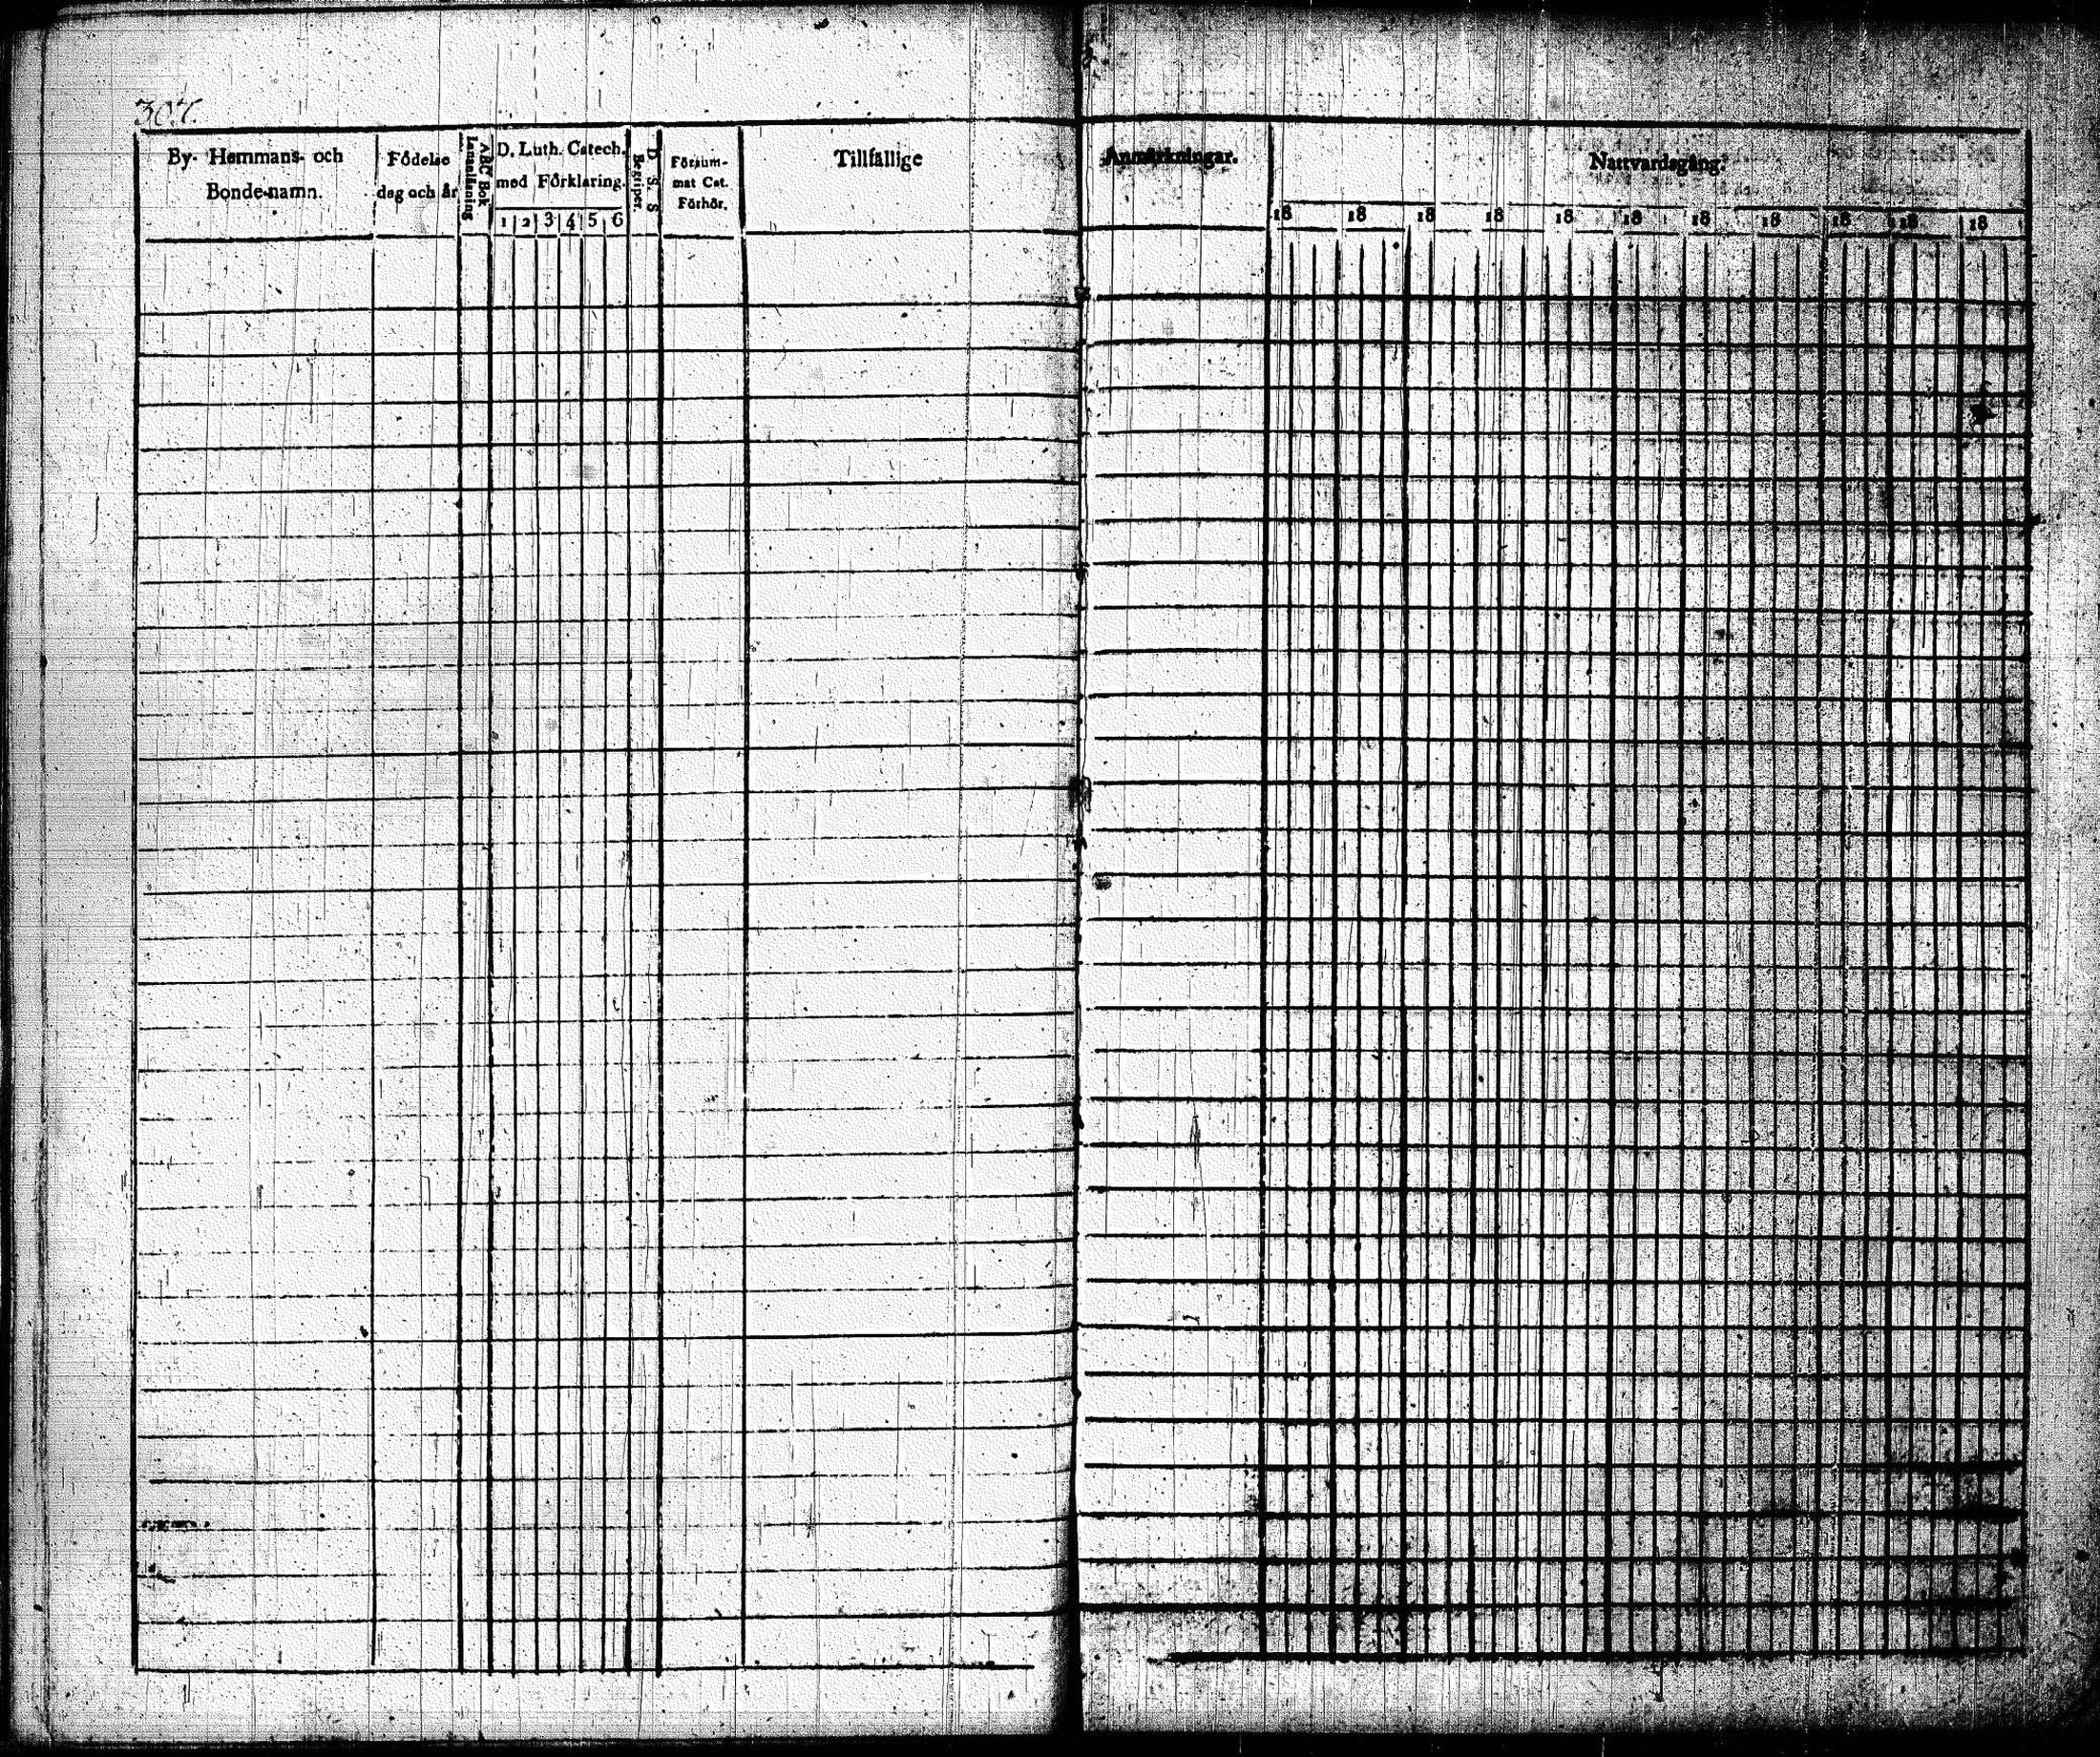 By- Hemmans- och
Bonde-namn.
Födelse
dag och år
ABC Bok
Innanläsning
D. Luth. Catech.
med Förklaring.
1 2 3 4 5 6
D. S. S.
Begriper.
Försum-
mat Cat.
Förhör.
Tillfällige
Anmärkningar.
Nattvardsgång.
18 18 18 18 18 18 18 18 18 18 18